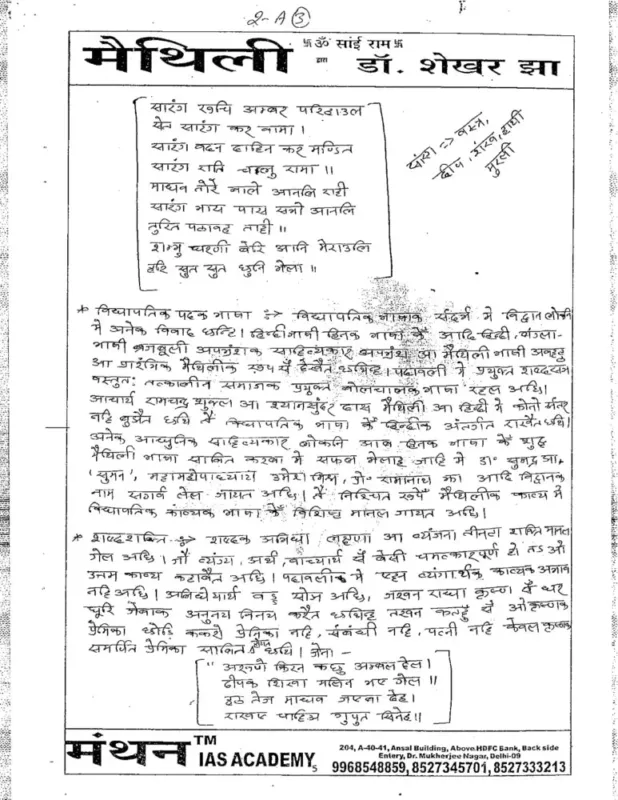 2-A(3)
卐ॐ सांई राम卐
मैथिली द्वारा डॉ. शेखर झा
सारंग रुचि अम्बर परिहाउल
सारंग कर वामा।
सारंग वदन दाहिन कर मण्डित
सारंग राति चालु रामा॥
माधव तोरे बोले आनलि राही
सारंग भाय पास सञो आनलि
तुरित पठावह ताही॥
शम्भु घरणी बेरि आनि मेराउलि
हरि सुत सुत धुनि भेला॥
सारंग => वस्त्र,
दीप, शंख, हाथी
मुरली
* विद्यापतिक पदक भाषा :→ विद्यापतिक भाषाक संदर्भ मे विद्वान लोकनि
मे अनेक विवाद छन्हि। हिन्दीभाषी हिनक भाषा कें आदि हिन्दी, बंगला-
भाषी ब्रजबूली अपभ्रंशक साहित्यकार अपभ्रंश आ मैथिली भाषी अवहट्ट
आ प्रारंभिक मैथिलीक रूप सँ देखैत छथिन्ह। पदावली मे प्रयुक्त शब्द
वस्तुत: तत्कालीन समाजक प्रयुक्त बोलचालक भाषा रहल अछि।
आचार्य रामचन्द्र शुक्ल आ श्यामसुंदर दास मैथिली आ हिन्दी मे कोनो अंतर
नहि बुझैत छथि तें विद्यापतिक भाषा कें हिन्दीक अंतर्गत राखैत छथि।
अनेक आधुनिक साहित्यकार लोकनि आब हिनक भाषा कें शुद्ध
मैथिली भाषा साबित करबा मे सफल भेलाह जाहि मे डा॰ सुभद्र झा,
'सुमन', महामहोपाध्याय उमेश मिश्र, प्रो॰ रमानाथ झा आदि विद्वानक
नाम सगर्व लेल जायत अछि। तें निश्चित रूपें मैथिलीक काव्य मे
विद्यापतिक काव्यक भाषा कें विशिष्ट मानल जायत अछि।
* शब्दशक्ति :→ शब्दक अभिधा लक्षणा आ व्यंजना तीनटा शक्ति मानल
गेल अछि। जौं व्यंग्य, अर्थ, वाच्यार्थ सँ बेसी चमत्कारपूर्ण हो तऽ ओ
उत्तम काव्य कहावैत अछि। पदावलीक मे एहन व्यंगार्थक काव्यक अभाव
नहि अछि। अभिधेयार्थ वड्ड सोझ अछि, जखन राधा कृष्ण सँ घर
घूरि जेबाक अनुनय विनय करैत छथिन्ह तखन कतहु सँ ओ कृष्णक
प्रेमिका छोड़ि ककरो प्रेमिका नहि, संबंधी नहि, पत्नी नहि केवल कृष्णक
समर्पित प्रेमिका साबित होइत छथि। जेना -
"अरुणे किरन कछु अम्बर देल।
दीपक शिखा मलिन भए गेल॥
हठ तेज माधव जएबा देह।
राखए चाहिअ गुपुत सिनेह॥
मंथन™
IAS ACADEMY
5
204, A-40-41, Ansal Building, Above HDFC Bank, Back side
Entery, Dr. Mukherjee Nagar, Delhi-09
9968548859, 8527345701, 8527333213